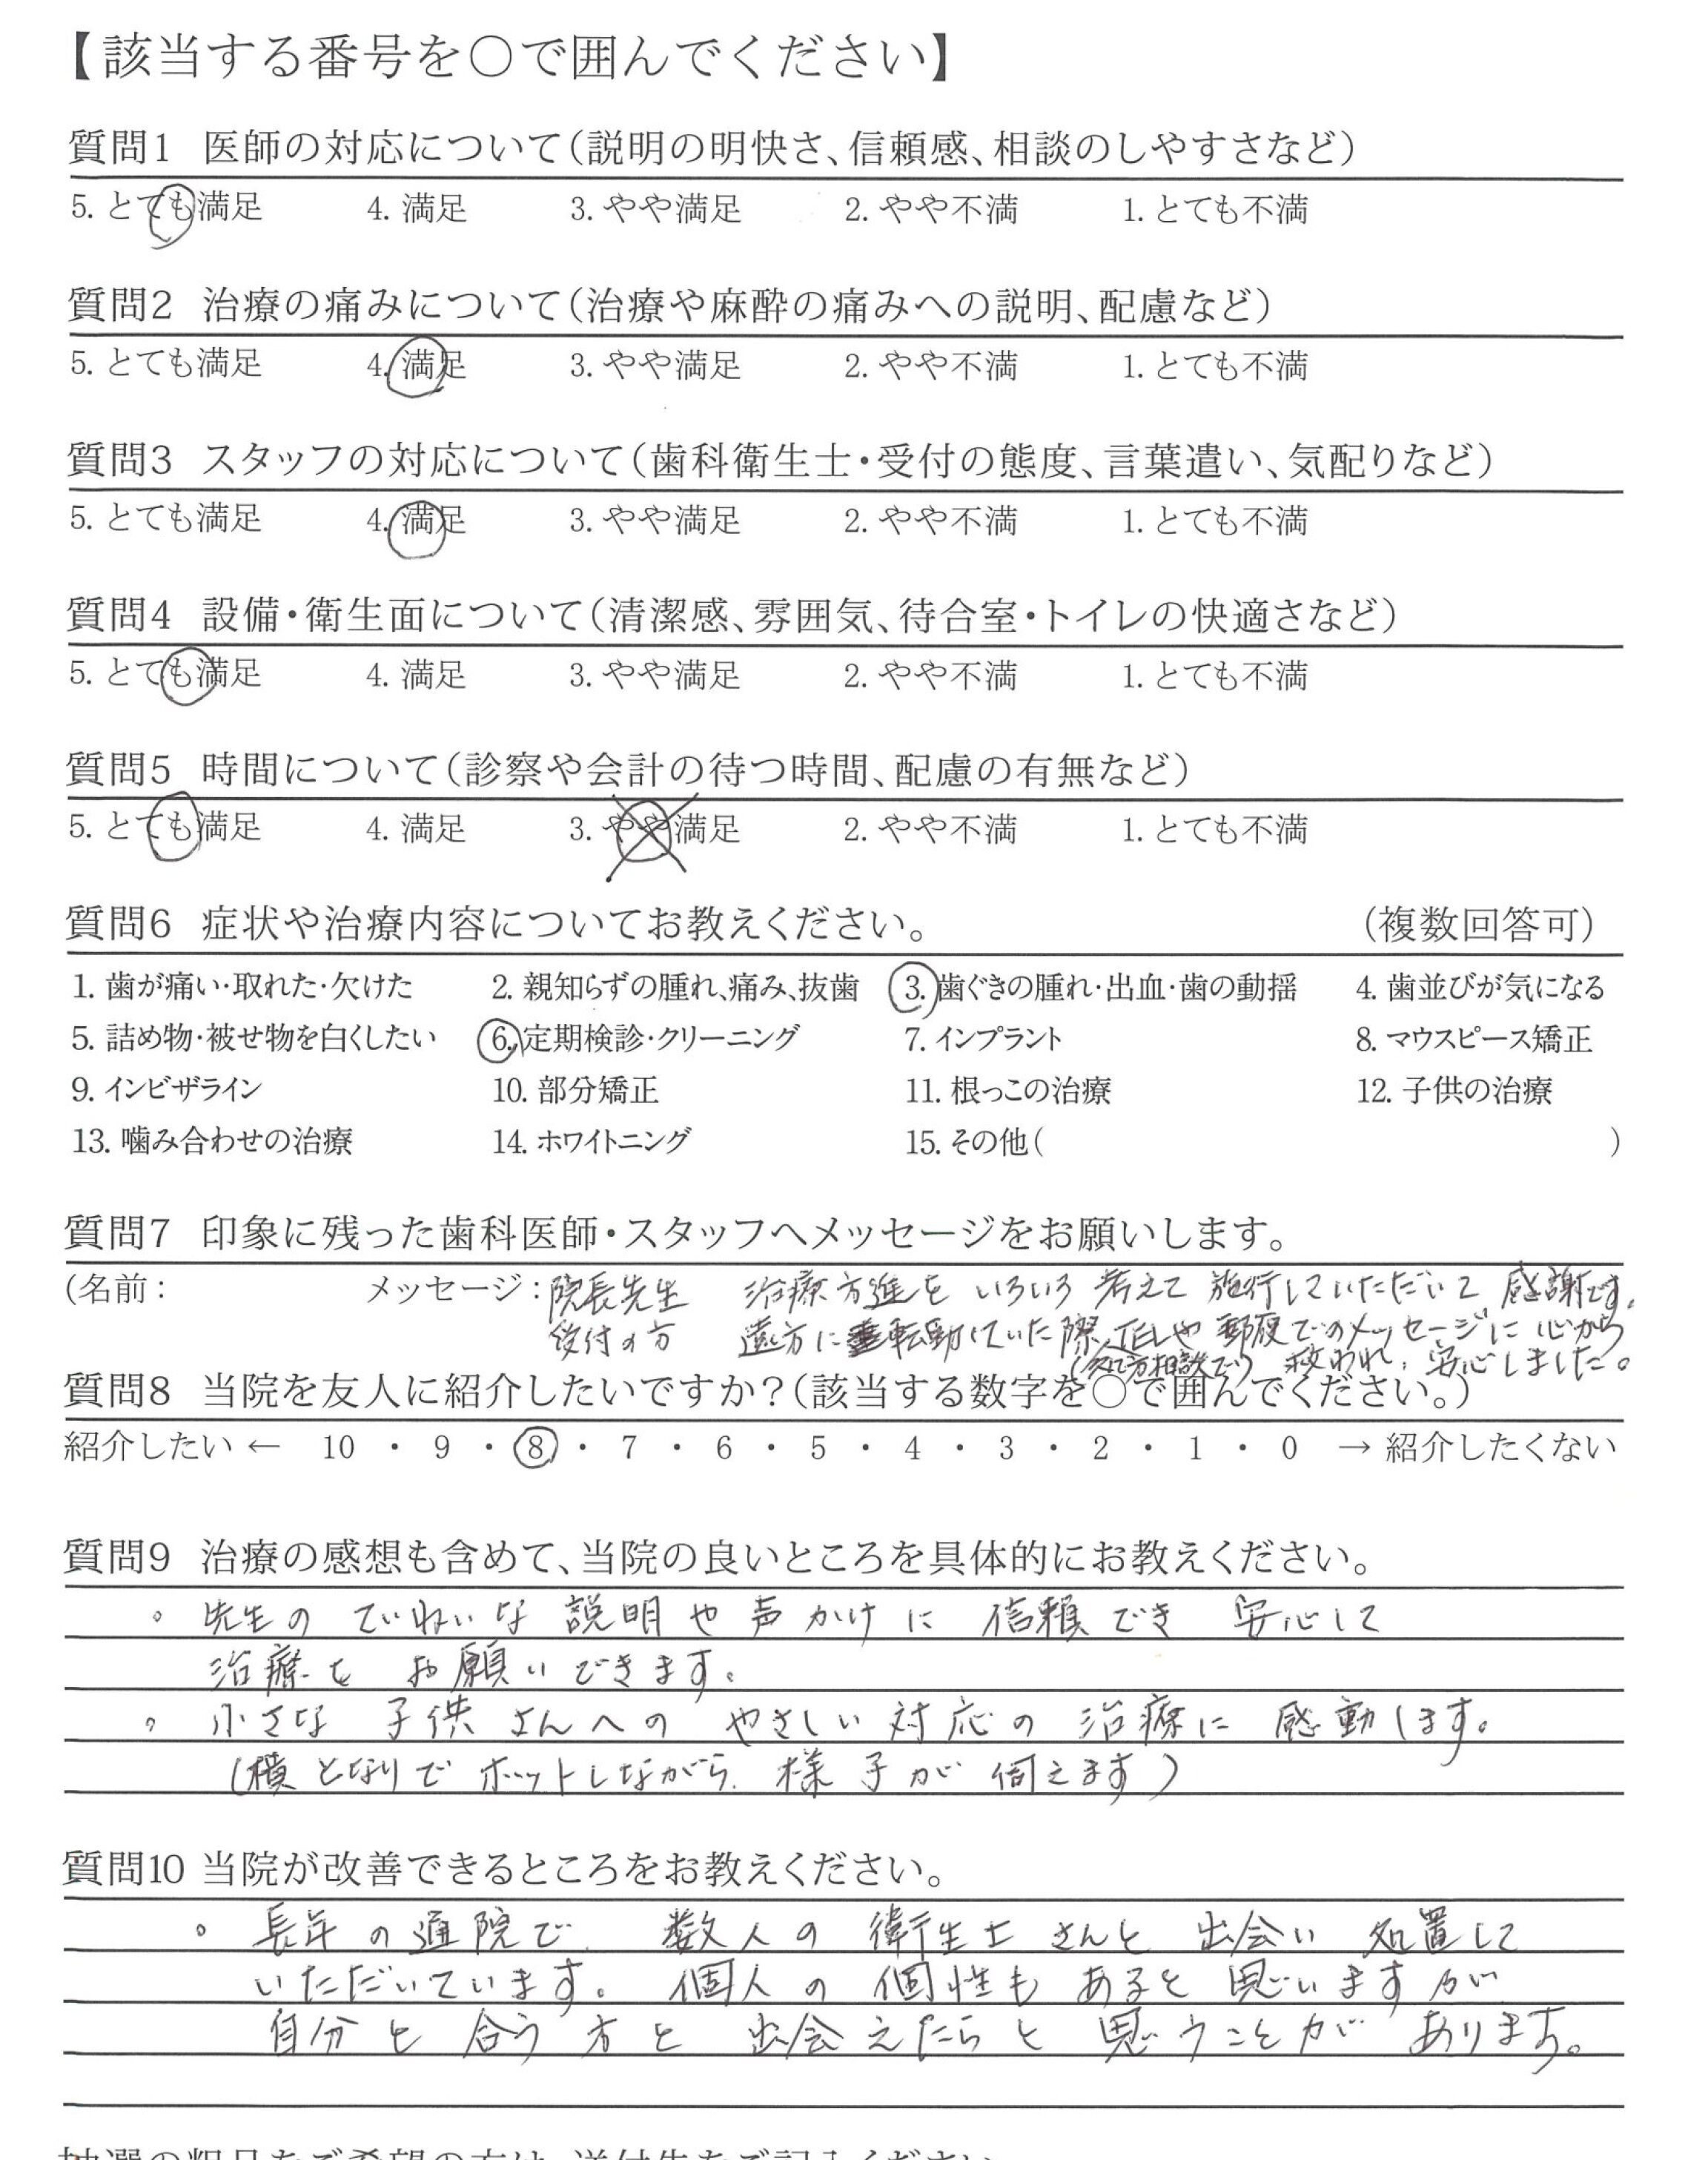 【該当する番号を〇で囲んでください】
質問1 医師の対応について(説明の明快さ、信頼感、相談のしやすさなど)
5. とても満足 4. 満足 3. やや満足 2. やや不満 1. とても不満
質問2 治療の痛みについて(治療や麻酔の痛みへの説明、配慮など)
5. とても満足 4. 満足 3. やや満足 2. やや不満 1. とても不満
質問3 スタッフの対応について(歯科衛生士・受付の態度、言葉遣い、気配りなど)
5. とても満足 4. 満足 3. やや満足 2. やや不満 1. とても不満
質問4 設備・衛生面について(清潔感、雰囲気、待合室・トイレの快適さなど)
5. とても満足 4. 満足 3. やや満足 2. やや不満 1. とても不満
質問5 時間について(診察や会計の待つ時間、配慮の有無など)
5. とても満足 4. 満足 3. やや満足 2. やや不満 1. とても不満
質問6 症状や治療内容についてお教えください。 (複数回答可)
1. 歯が痛い・取れた・欠けた 2. 親知らずの腫れ、痛み、抜歯 3. 歯ぐきの腫れ・出血・歯の動揺 4. 歯並びが気になる
5. 詰め物・被せ物を白くしたい 6. 定期検診・クリーニング 7. インプラント 8. マウスピース矯正
9. インビザライン 10. 部分矯正 11. 根っこの治療 12. 子供の治療
13. 噛み合わせの治療 14. ホワイトニング 15. その他( )
質問7 印象に残った歯科医師・スタッフへメッセージをお願いします。
(名前: メッセージ:院長先生 治療方進を いろいろ 考えて 施行していただいて 感謝です。
受付の方 遠方に転勤していた際、TELや 郵便でのメッセージに 心から
(処方相談で) 救われ、安心しました。
質問8 当院を友人に紹介したいですか?(該当する数字を〇で囲んでください。)
紹介したい ← 10 ・ 9 ・ 8 ・ 7 ・ 6 ・ 5 ・ 4 ・ 3 ・ 2 ・ 1 ・ 0 → 紹介したくない
質問9 治療の感想も含めて、当院の良いところを具体的にお教えください。
。先生の ていねいな 説明や 声かけに 信頼でき 安心して
治療を お願いできます。
。小さな 子供さんへの やさしい 対応の 治療に 感動します。
(横となりで ホットしながら、様子が 伺えます)
質問10 当院が改善できるところをお教えください。
。長年の通院で、数人の 衛生士さんと 出会い 処置して
いただいています。個人の 個性も あると 思いますが
自分と 合う 方と 出会えたらと 思うことが あります。